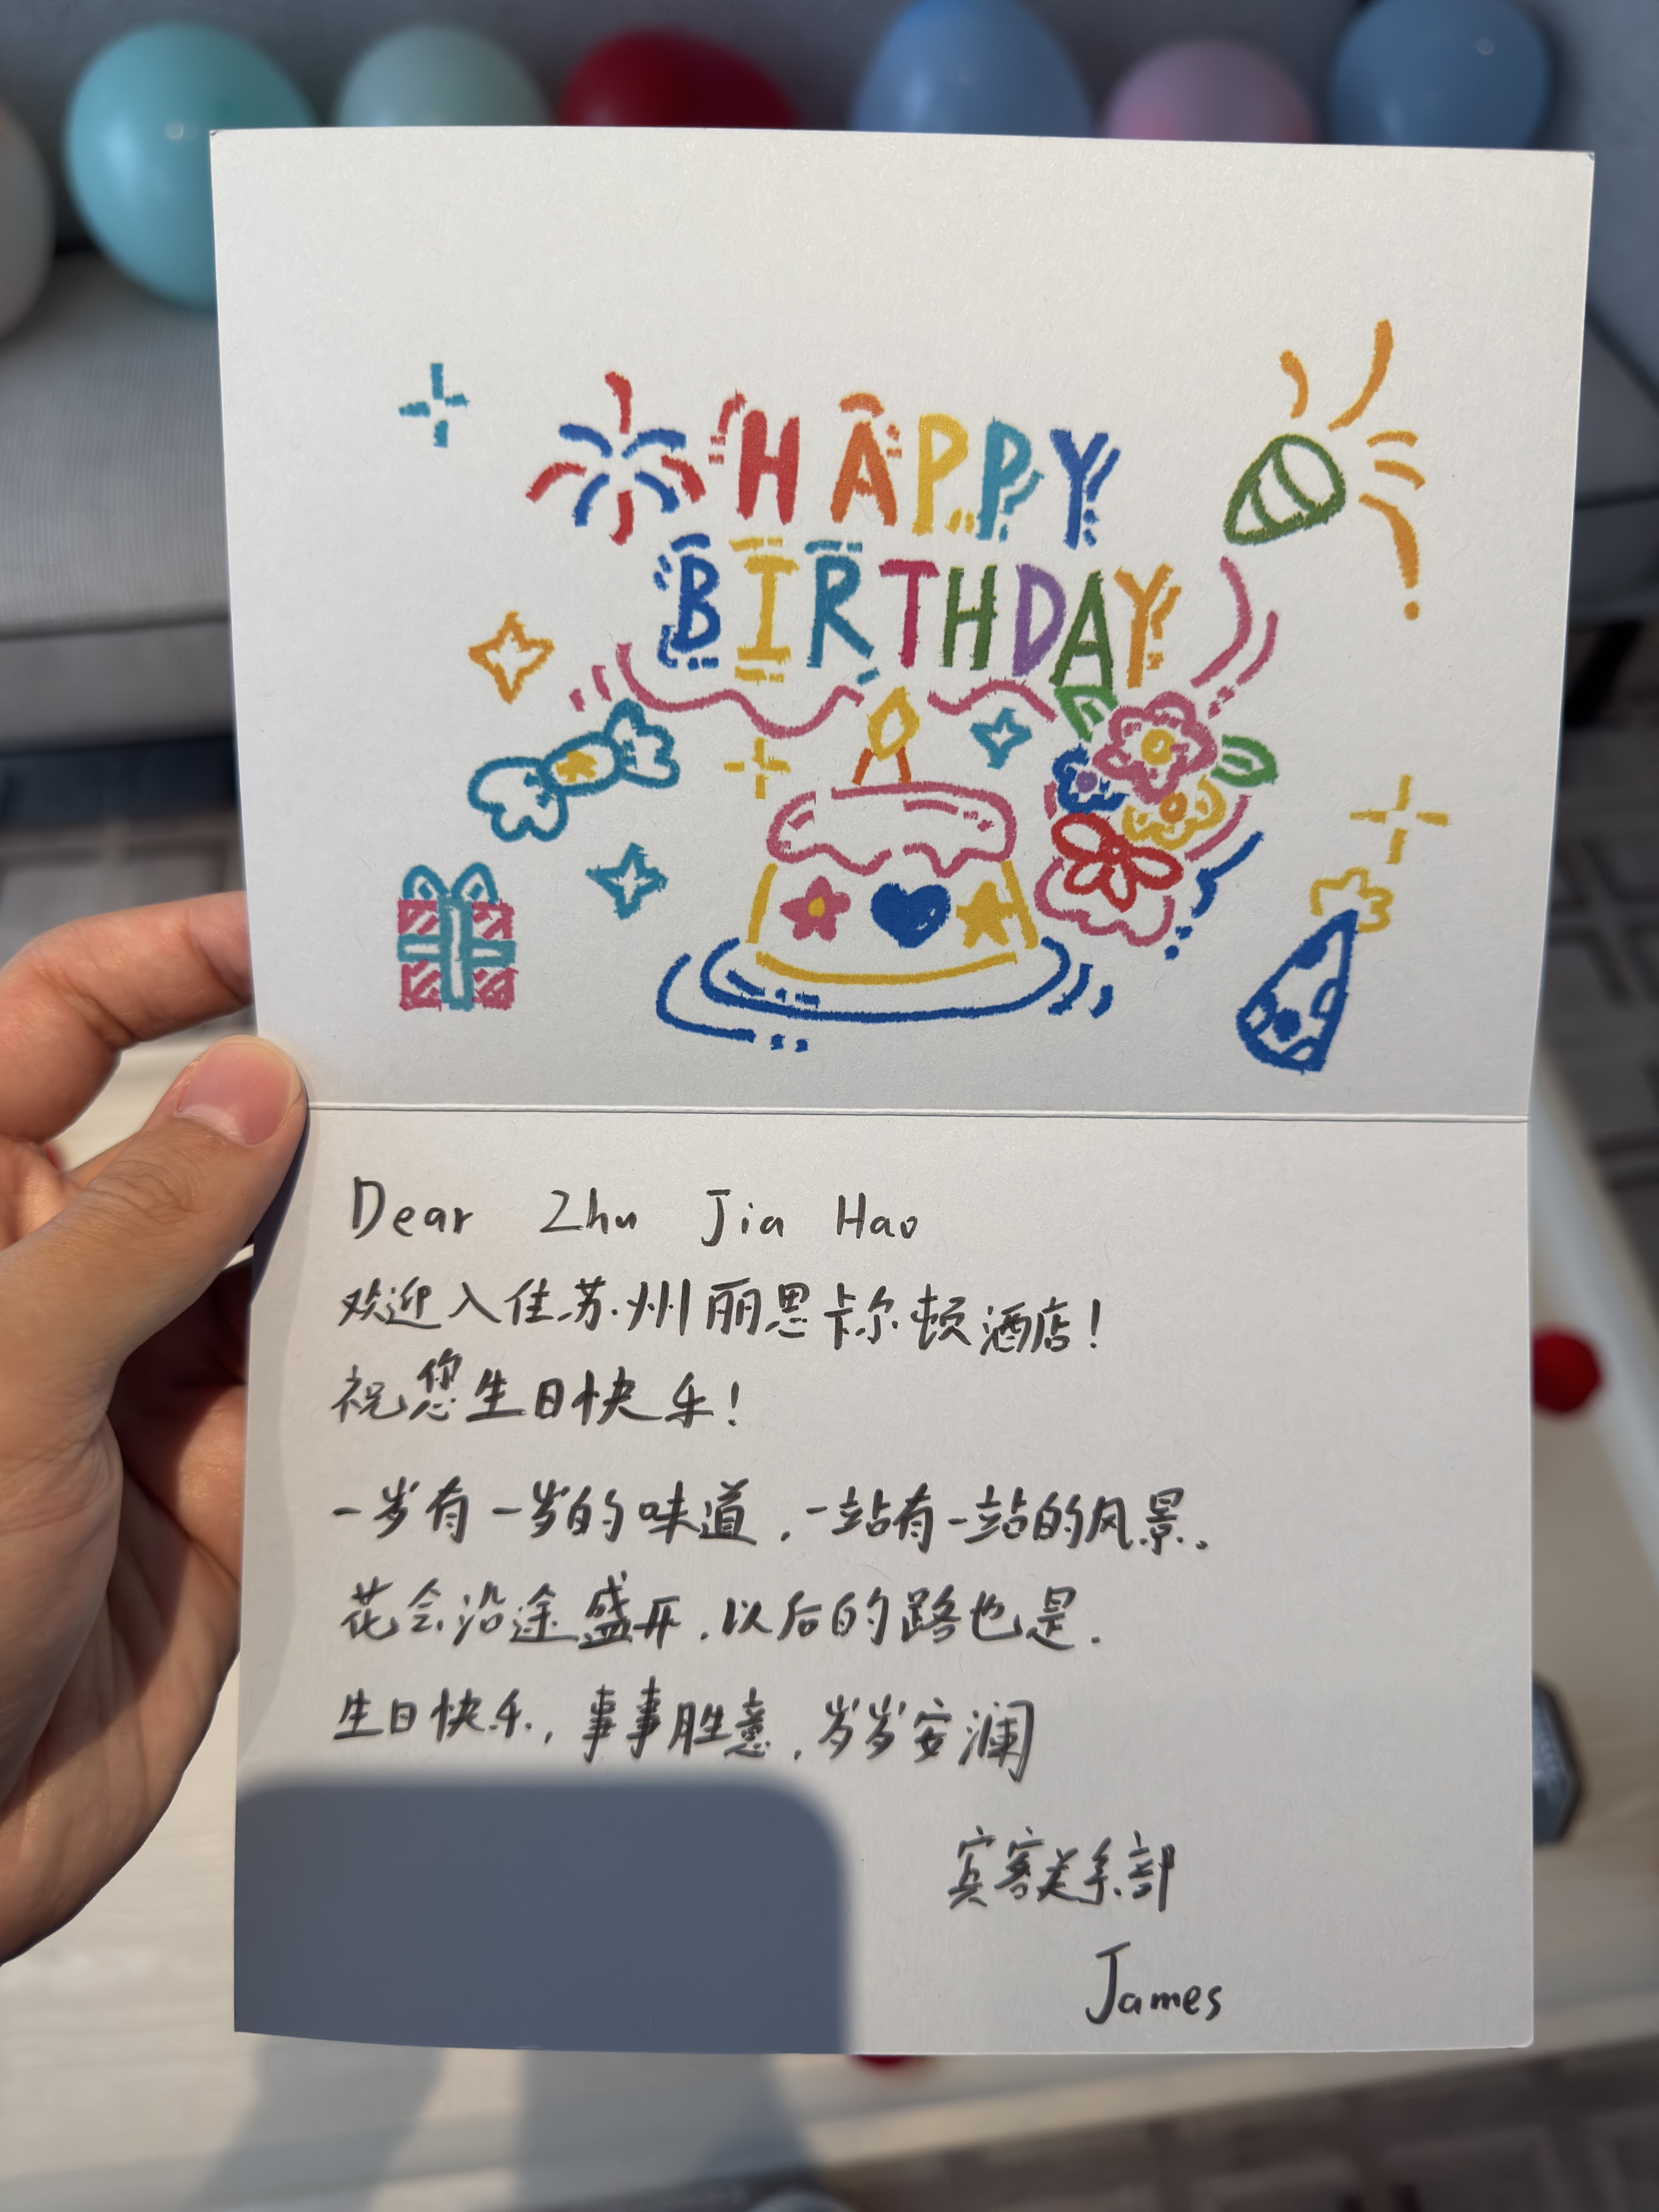 HAPPY
BIRTHDAY
Dear Zhu Jia Hao
欢迎入住苏州丽思卡尔顿酒店！
祝您生日快乐！
一岁有一岁的味道，一站有一站的风景。
花会沿途盛开，以后的路也是.
生日快乐，事事胜意，岁岁安澜
宾客关系部
James